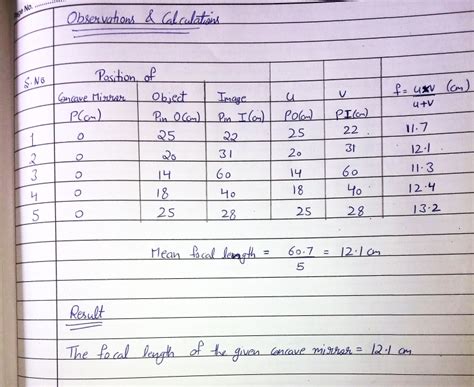 Page No.
Observations & Calculations
S.No Position of
Concave Mirror Object Image u v f = uxv (cm)
P(cm) Pin O(cm) Pin I(cm) PO(cm) PI(cm) u+v
1 0 25 22 25 22 11.7
2 0 20 31 20 31 12.1
3 0 14 60 14 60 11.3
4 0 18 40 18 40 12.4
5 0 25 28 25 28 13.2
Mean focal length = 60.7 = 12.1 cm
5
Result
The focal length of the given concave mirror = 12.1 cm